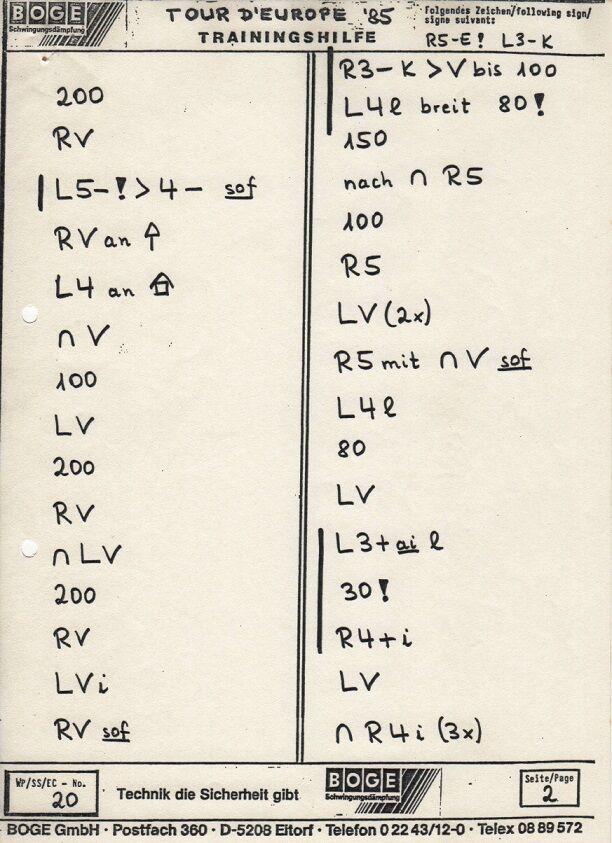 BOGE
Schwingungsdämpfung
TOUR D'EUROPE '85
TRAININGSHILFE
Folgendes Zeichen/following sign/
signe suivant:
R5-E! L3-K
200
RV
L5-!>4- sof
RV an ↑
L4 an
∩ V
100
LV
200
RV
∩ LV
200
RV
LVi
RV sof
R3-K >V bis 100
L4l breit 80!
150
nach ∩ R5
100
R5
LV (2x)
R5 mit ∩ V sof
L4l
80
LV
L3+ ai l
30!
R4+i
LV
∩ R4i (3x)
WP/SS/EC - No.
20
Technik die Sicherheit gibt
BOGE
Schwingungsdämpfung
Seite/Page
2
BOGE GmbH · Postfach 360 · D-5208 Eitorf · Telefon 0 22 43/12-0 · Telex 08 89 572